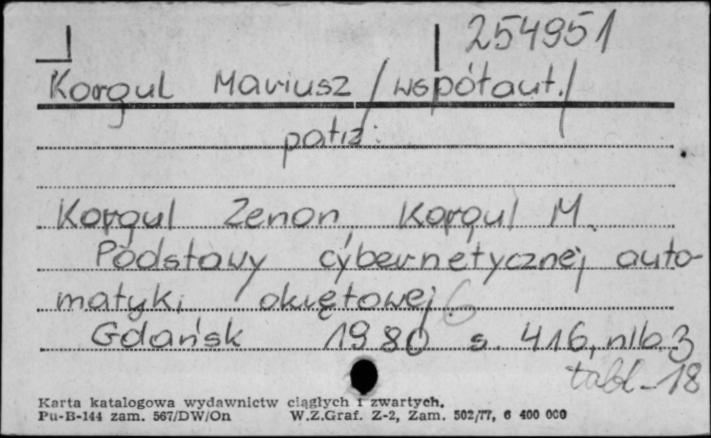 254951
Korgul Mariusz /współaut./
patrz:
Korgul Zenon, Korgul M.
Podstawy cybernetycznej auto-
matyki okrętowej. 6
Gdańsk 1980 s. 416, nlb. 3
tabl. 18
Karta katalogowa wydawnictw ciągłych i zwartych.
Pu-B-144 zam. 567/DW/On W.Z.Graf. Z-2, Zam. 502/77, 6 400 000